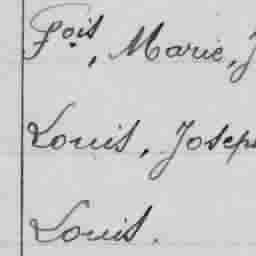 Fois, Marie, J
Louis, Josep
Louis.